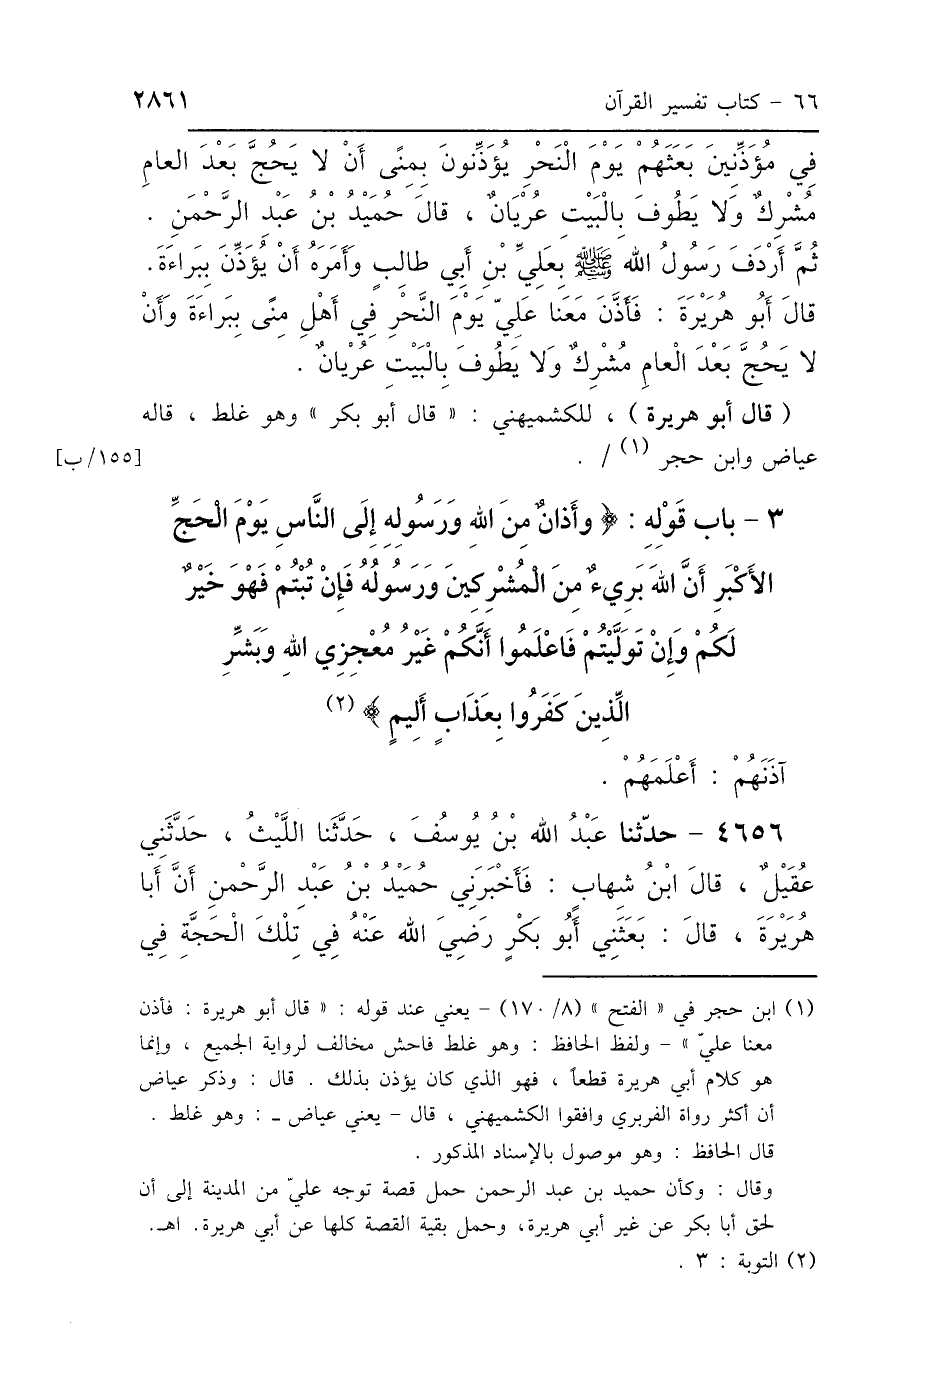 ٦٦ - كتاب تفسير القرآن ٢٨٦١
فِي مُؤَذِّنِينَ بَعَثَهُمْ يَوْمَ النَّحْرِ يُؤَذِّنُونَ بِمِنًى أَنْ لا يَحُجَّ بَعْدَ العامِ
مُشْرِكٌ وَلا يَطُوفَ بِالْبَيْتِ عُرْيَانٌ ، قالَ حُمَيْدُ بْنُ عَبْدِ الرَّحْمَنِ .
ثُمَّ أَرْدَفَ رَسُولُ اللهِ ﷺ بِعَلِيِّ بْنِ أَبِي طالِبٍ وَأَمَرَهُ أَنْ يُؤَذِّنَ بِبَراءَةَ.
قالَ أَبُو هُرَيْرَةَ : فَأَذَّنَ مَعَنا عَلِيّ يَوْمَ النَّحْرِ فِي أَهْلِ مِنًى بِبَراءَةَ وَأَنْ
لا يَحُجَّ بَعْدَ الْعامِ مُشْرِكٌ وَلا يَطُوفَ بِالْبَيْتِ عُرْيَانٌ .
( قال أبو هريرة ) ، للكشميهني : « قال أبو بكر » وهو غلط ، قاله
عياض وابن حجر (١) / . [١٥٥/ب]
٣ - باب قَوْلِهِ : ﴿ وأَذانٌ مِنَ اللهِ وَرَسُولِهِ إِلَى النَّاسِ يَوْمَ الْحَجِّ
الأَكْبَرِ أَنَّ اللهَ بَرِيءٌ مِنَ الْمُشْرِكِينَ وَرَسُولُهُ فَإِنْ تُبْتُمْ فَهُوَ خَيْرٌ
لَكُمْ وَإِنْ تَوَلَّيْتُمْ فَاعْلَمُوا أَنَّكُمْ غَيْرُ مُعْجِزِي اللهِ وَبَشِّرِ
الَّذِينَ كَفَرُوا بِعَذَابٍ أَلِيمٍ ﴾ (٢)
آذَنَهُمْ : أَعْلَمَهُمْ .
٤٦٥٦ - حدّثنا عَبْدُ اللهِ بْنُ يُوسُفَ ، حَدَّثَنا اللَّيْثُ ، حَدَّثَنِي
عُقَيْلٌ ، قالَ ابْنُ شِهابٍ : فَأَخْبَرَنِي حُمَيْدُ بْنُ عَبْدِ الرَّحْمنِ أَنَّ أَبا
هُرَيْرَةَ ، قالَ : بَعَثَنِي أَبُو بَكْرٍ رَضِيَ اللهُ عَنْهُ فِي تِلْكَ الْحَجَّةِ فِي
(١) ابن حجر في « الفتح » (١٧٠/٨) - يعني عند قوله : « قال أبو هريرة : فأذن
معنا عليّ » - ولفظ الحافظ : وهو غلط فاحش مخالف لرواية الجميع ، وإنما
هو كلام أبي هريرة قطعاً ، فهو الذي كان يؤذن بذلك . قال : وذكر عياض
أن أكثر رواة الفربري وافقوا الكشميهني ، قال - يعني عياض ـ : وهو غلط .
قال الحافظ : وهو موصول بالإسناد المذكور .
وقال : وكأن حميد بن عبد الرحمن حمل قصة توجه عليّ من المدينة إلى أن
لحق أبا بكر عن غير أبي هريرة، وحمل بقية القصة كلها عن أبي هريرة. اهـ.
(٢) التوبة : ٣ .